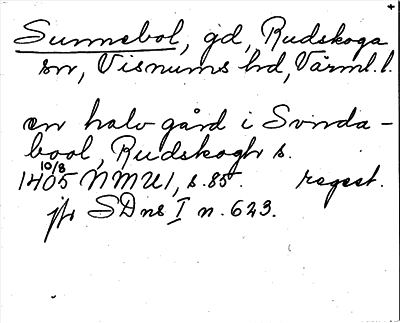 Sunnebol, gd, Rudskoga
sn, Visnums hd, Värml. l.
en halv gård i Svnda-
bool, Rudskogh s.
10/8
1405 NMU 1, s. 85. regest.
jfr SDns I n. 623.